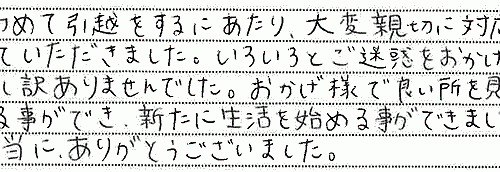 めて引越をするにあたり、大変親切に対応
ていただきました。いろいろとご迷惑をおかけ
し訳ありませんでした。おかげ様で良い所を見
る事ができ、新たに生活を始める事ができまし
当に、ありがとうございました。